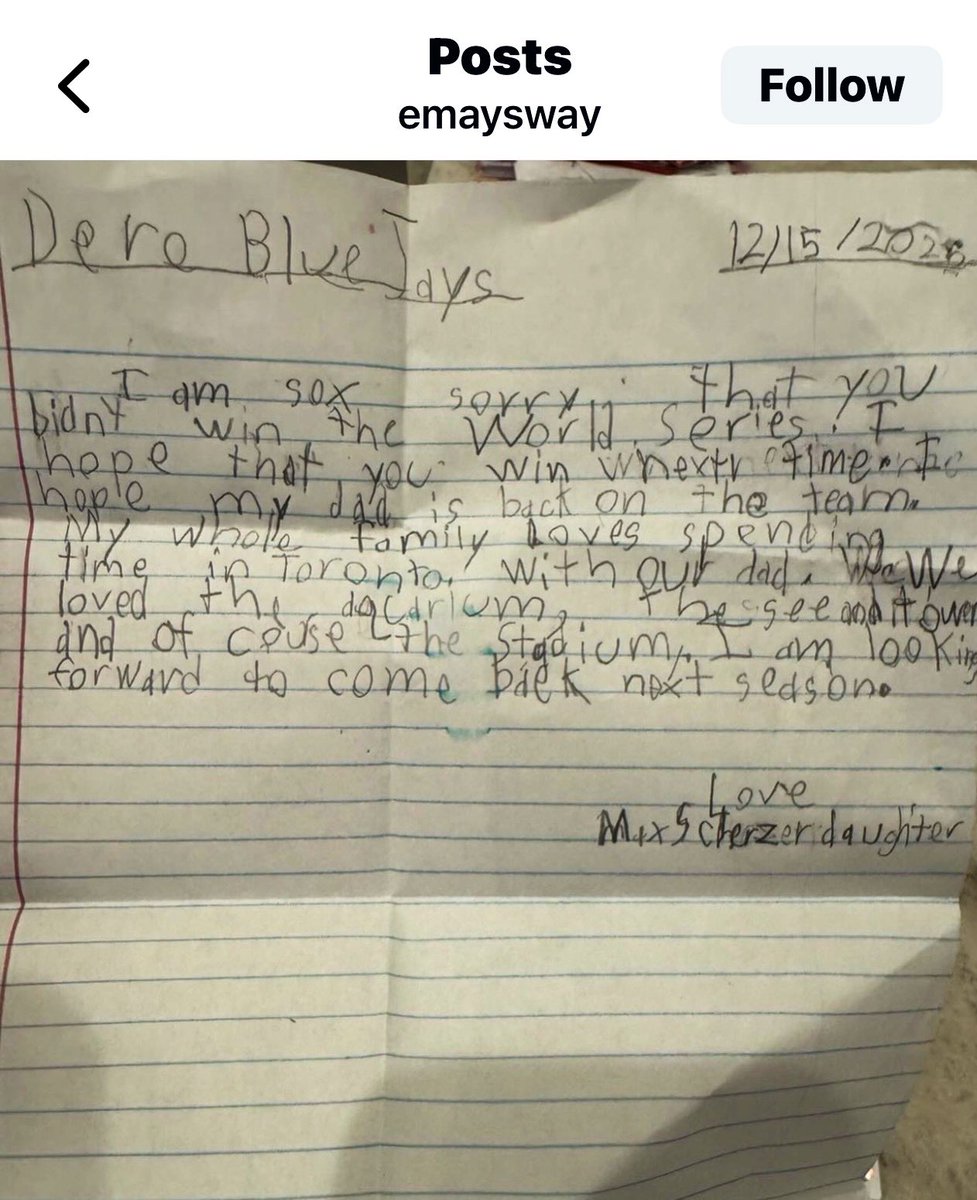 Posts
Follow
emaysway
Dero Blue Jays
12/15/2025
I am sox sorry that you
bidnt win the World series. I
hope that you win whextr time. I
hople my dad is back on the team.
My whole family loves spending
time in Toronto. with our dad. We We
loved the aqcarium, the see and it ower
and of couse the stadium. I am looking
forward to come back next season.
Love
Max Scherzer daughter